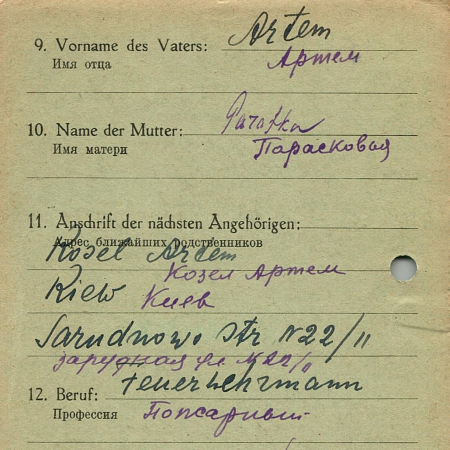 9. Vorname des Vaters: Artem
Имя отца Артем
10. Name der Mutter: Paraska
Имя матери Парасковия
11. Anschrift der nächsten Angehörigen:
Адрес ближайших родственников
Kosel Artem
Козел Артем
Kiew Киев
Sarudnowo Str N 22/11
зарудная ул N 22/11
12. Beruf: Feuerwehrmann
Профессия Пожарный